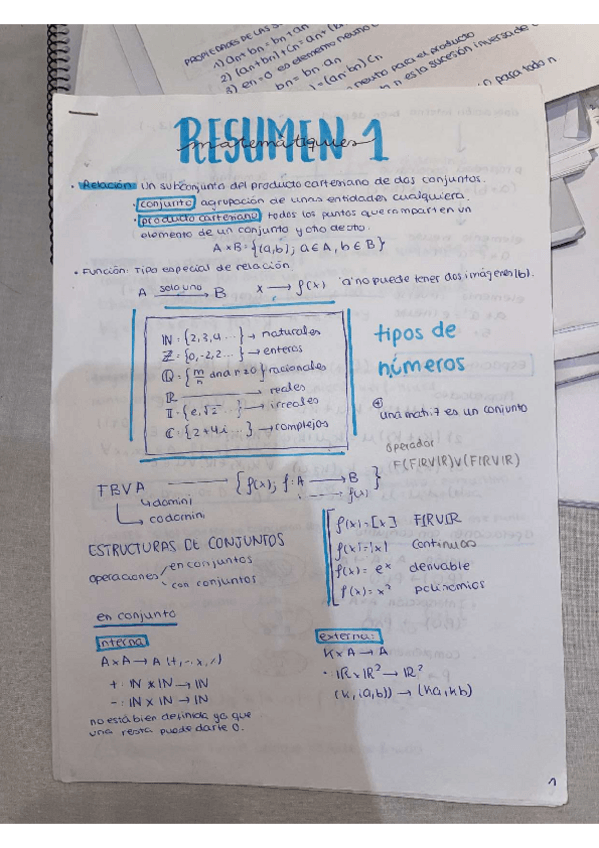 PROPIEDADES DE LAS
1) an+bn = bn+an
2) (an+bn)+cn = an+
3) en=0 es elemento neutro
bn = bn·an
= (an·bn)cn
neutro para el producto
n es la sucesión inversa de
n para todo n
RESUMEN 1
matemàtiques
· Relación: un subconjunto del producto cartesiano de dos conjuntos.
· conjunto agrupación de unas entidades cualquiera.
· producto cartesiano todos los puntos que comparten un
elemento de un conjunto y otro de otro.
A×B = {(a,b); a∈A, b∈B}
· Función: tipo especial de relación.
A solo uno → B x → f(x) 'a' no puede tener dos imágenes (b).
IN = {2,3,4...} → naturales
Z = {0,-2,2...} → enteros
Q = {m/n and n≠0} racionales
IR → reales
II = {e,√2 → irreales
C = {2+4i...} → complejos
tipos de
números
⊕
una matriz es un conjunto
operador
F(IR,IR)∨(F(IR,IR)
FBVA → {f(x); f: A → B }
f(x)
↳ domini
↳ codomini
f(x) = [x] F(IR,IR
f(x) = |x| continuas
f(x) = eˣ derivable
f(x) = x² polinomios
ESTRUCTURAS DE CONJUNTOS
operaciones en conjuntos
con conjuntos
en conjunto
interna
A×A → A (+,-,x,/)
+ : IN × IN → IN
- : IN × IN → IN
no está bien definida ya que
una resta puede darte 0.
externa:
K×A → A
· IR×IR² → IR²
(k,(a,b)) → (ka,kb)
1